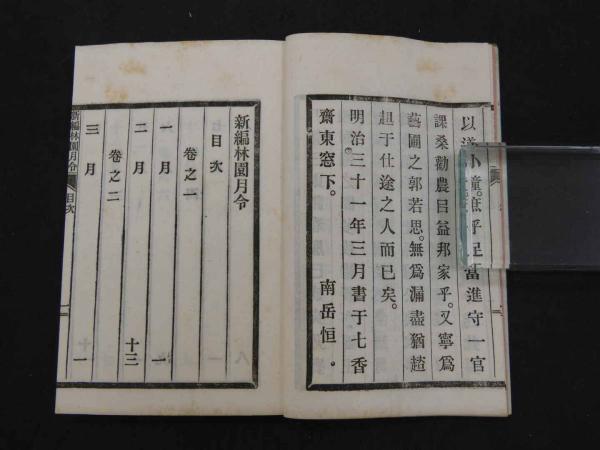 以導小童。庶乎足當進守一官
課桑勸農日益邦家乎。又寧爲
藝圃之郭若思。無爲漏盡猶趦
趄于仕途之人而已矣。
明治三十一年三月書于七香
齋東窓下。
南岳恒
新編林園月令
目次
卷之一
一月 一
二月 十三
卷之二
三月 一
新編林園月令 目次 一